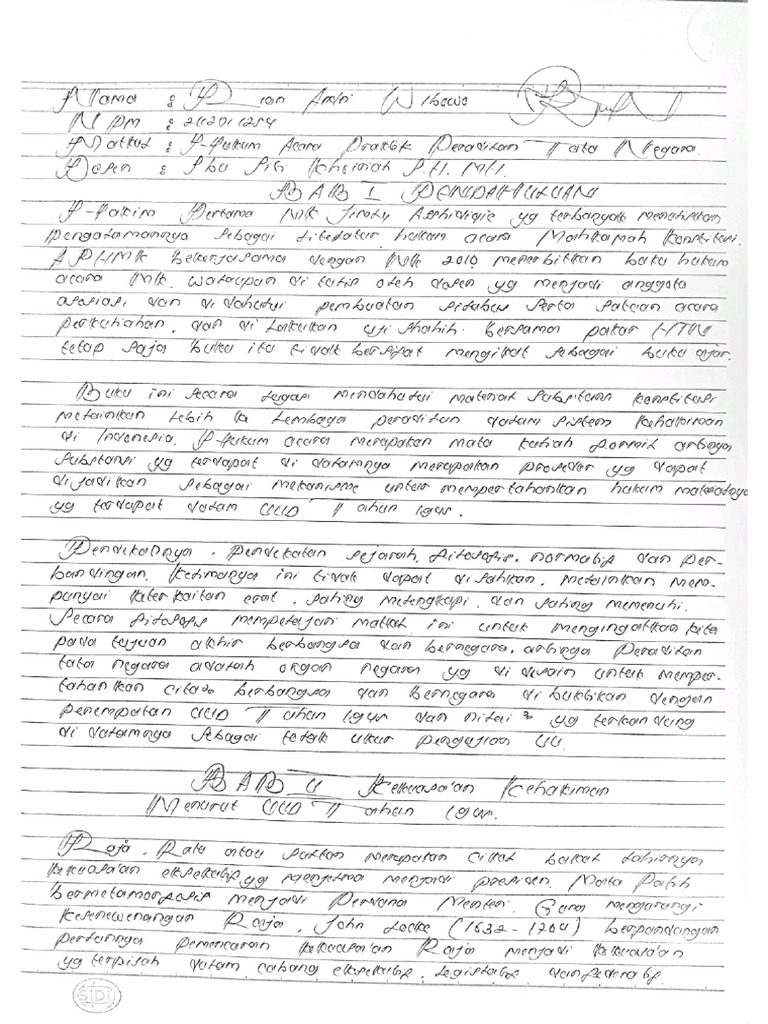 Nama : Dian Andri Wibowo
NPM : 2420111254
Matkul : Hukum Acara Praktik Peradilan Tata Negara.
Dosen : Ibu Siti Khoiriah S.H. MH.
BAB I PENDAHULUAN
Hakim Pertama MK Jimly Asshidiqie yg terbanyak menuliskan
pengalamannya sebagai literatur hukum acara Mahkamah Konstitusi.
APHMK bekerjasama dengan MK 2010 menerbitkan buku hukum
acara MK. Walaupun di tulis oleh dosen yg menjadi anggota
asosiasi dan di dahului pembuatan silabus serta satuan acara
perkuliahan, dan di lakukan uji shahih bersama pakar HTN
tetap saja buku itu tidak bersifat mengikat sebagai buku ajar.
Buku ini secara tegas mendahului materiak subsitem konstitusi
melainkan lebih ke lembaga peradilan dalam sistem kehakiman
di Indonesia. Hukum acara merupakan mata kuliah formil artinya
substansi yg terdapat di dalamnya merupakan prosedur yg dapat
dijadikan sebagai mekanisme untuk mempertahankan hukum materialnya
yg terdapat dalam UUD Tahun 1945.
Pendekatnya, pendekatan sejarah, filosofis, normatif dan per-
bandingan. Kelimanya ini tidak dapat di sahkan, melainkan mem-
punyai keterkaitan erat, saling melengkapi, dan saling memenuhi.
Secara filosofis mempelajari matkul ini untuk mengingatkan kita
pada tujuan akhir berbangsa dan bernegara, artinya Peradilan
tata negara adalah organ negara yg di desain untuk memper-
tahankan cita2 berbangsa dan bernegara di buktikan dengan
penempatan UUD Tahun 1945 dan nilai2 yg terkandung
di dalamnya sebagai tolak ukur pengujian UU.
BAB II Kekuasa'an Kehakiman
Menurut UUD Tahun 1945.
Raja, Ratu atau Sultan merupakan cikal bakal lahirnya
kekuasa'an eksekutif yg menjelma menjadi presiden. Maha Patih
bermetamorfosis menjadi Perdana Menteri. Guna mengurangi
kesenewenangan Raja, John Locke (1632-1704) berpandangan
perlunya pemencaran kekuasa'an Raja menjadi kekuasa'an
yg terpisah dalam cabang eksekutif, legislatif dan federatif.
SIDU